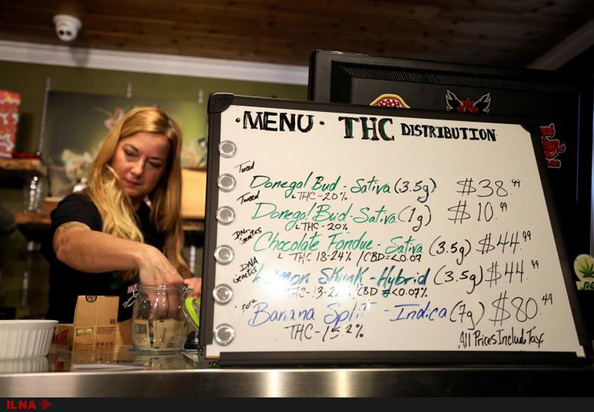 ·MENU· THC DISTRIBUTION
Tweed
Donegal Bud - Sativa (3.5g) $38.99
THC-20%
Tweed
Donegal Bud-Sativa (1g) $10.99
THC-20%
DNA Genetics
Chocolate Fondue - Sativa (3.5g) $44.99
THC 18-24% / CBD=<0.09
DNA Genetics
Skunk - Hybrid (3.5g) $44.99
CBD=<0.07%
Banana Split - Indica (7g) $80.49
THC-15.2%
All Prices Include Tax
ILNA